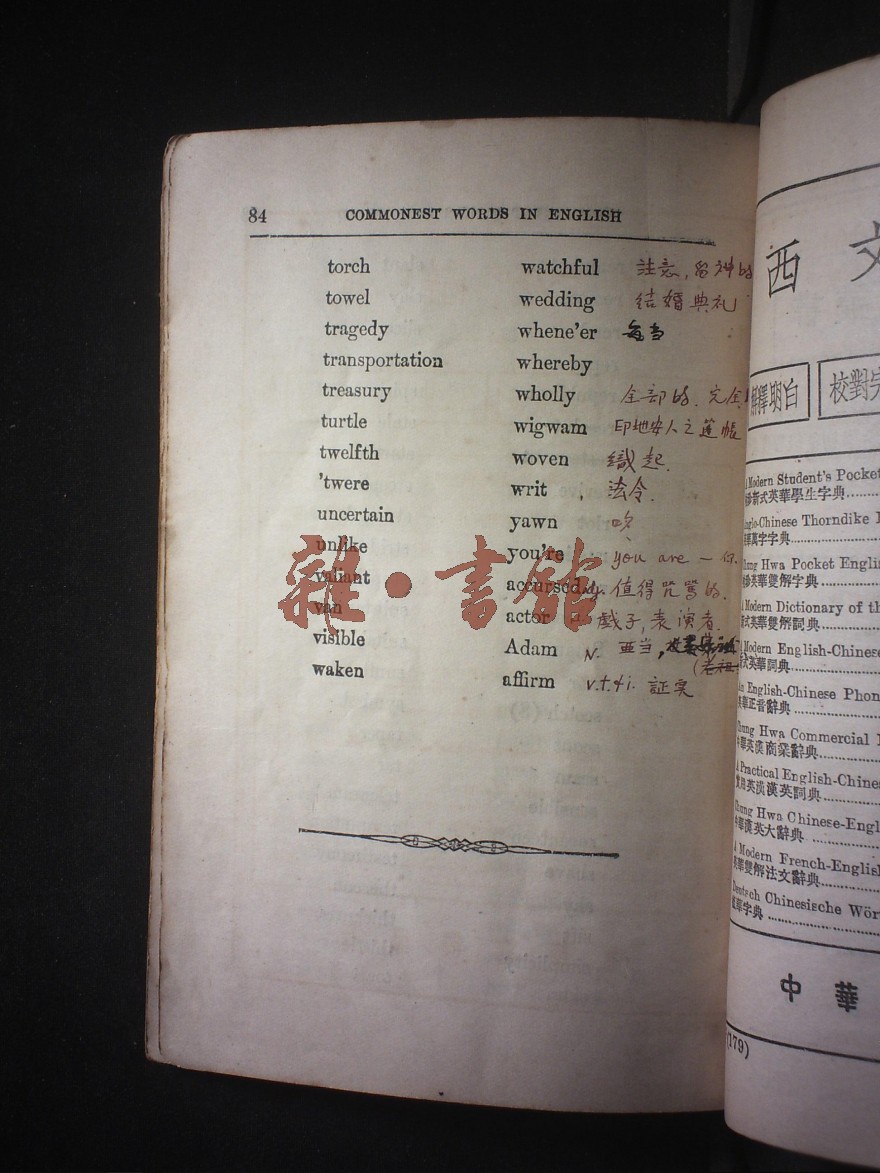 84 COMMONEST WORDS IN ENGLISH
torch watchful 註意,留神的
towel wedding 结婚典礼
tragedy whene'er 每当
transportation whereby
treasury wholly 全部的.完全
turtle wigwam 印地安人之蓬帳
twelfth woven 織起
'twere writ 法令.
uncertain yawn
unlike you're you are — 你.
valiant accursed adj. 值得咒罵的.
van actor 戲子,表演者.
visible Adam N. 亞当,
(老祖
waken affirm v.t.&i. 証实
雜·書館
西文
解釋明白 校對完
A Modern Student's Pocket
新式英華學生字典
Anglo-Chinese Thorndike
英華萬字字典
Chung Hwa Pocket Engli
英華雙解字典
A Modern Dictionary of th
新式英華雙解詞典
A Modern English-Chinese
新式英華詞典
An English-Chinese Phon
英華正音辭典
Chung Hwa Commercial
中華英漢商業辭典
A Practical English-Chine
實用英漢漢英詞典
Chung Hwa Chinese-Engl
中華漢英大辭典
A Modern French-English
英華雙解法文辭典
Deutsch Chinesische Wör
華字典
中華
(179)